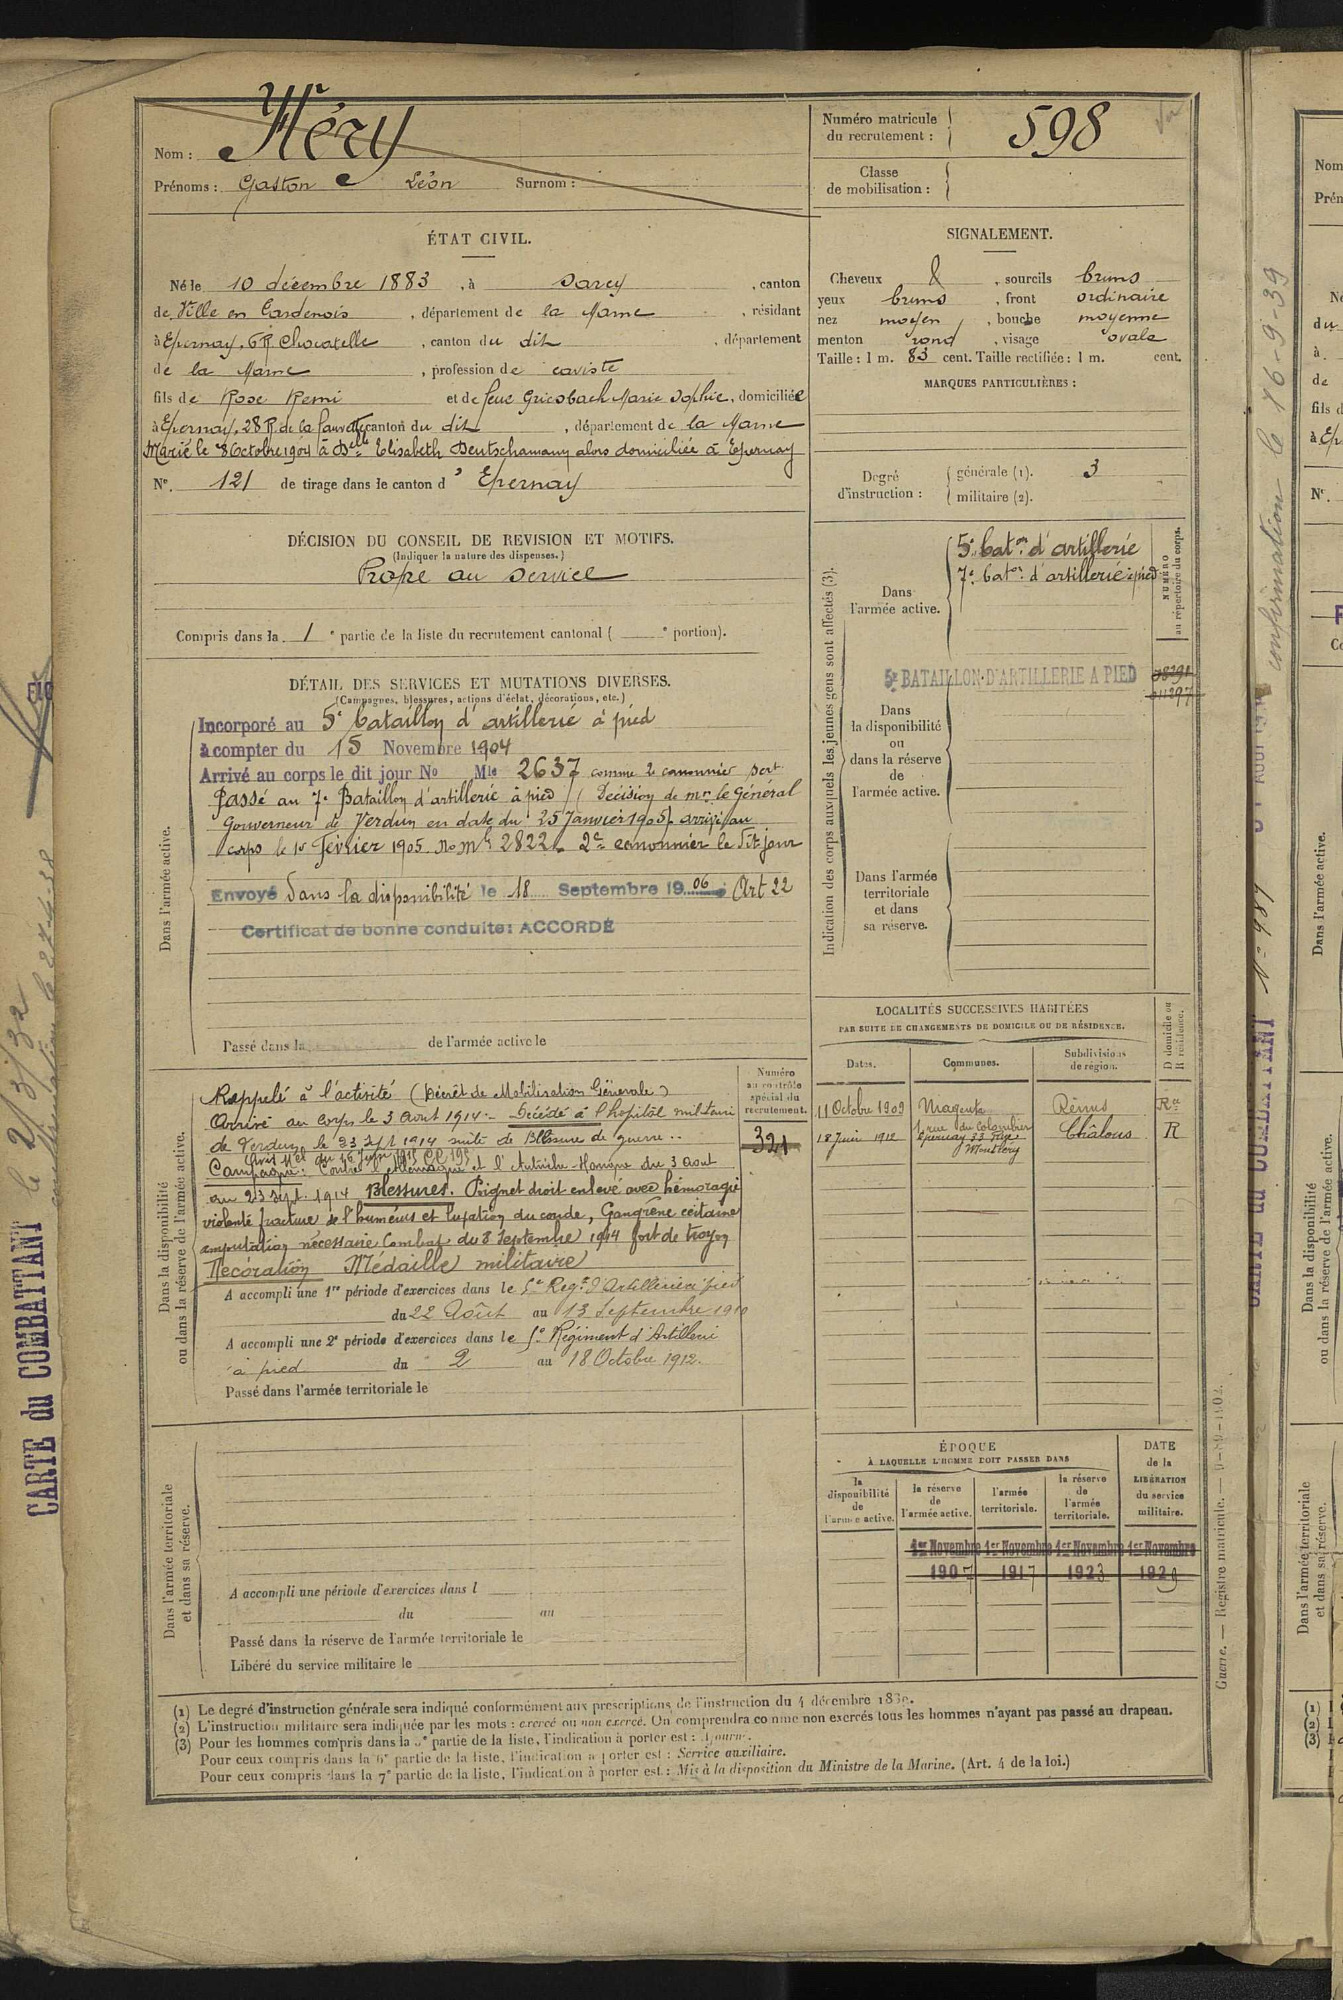 Nom : Héry
Prénoms : Gaston Léon Surnom :
Numéro matricule du recrutement : 598
Classe de mobilisation :
ÉTAT CIVIL.
Né le 10 décembre 1883, à Sarcy, canton
de Ville en Tardenois, département de la Marne, résidant
à Epernay, 6 R. Chocatelle, canton du dit, département
de la Marne, profession de caviste
fils de Rose Remi et de feue Griesbach Marie Sophie, domiciliée
à Epernay, 28 R. de la Fauvette canton du dit, département de la Marne
Marié le 8 Octobre 1904 à Delle Elisabeth Deutschamany alors domiciliée à Epernay
N° 121 de tirage dans le canton d'Epernay
SIGNALEMENT.
Cheveux &, sourcils bruns
yeux bruns, front ordinaire
nez moyen, bouche moyenne
menton rond, visage ovale
Taille : 1 m. 83 cent. Taille rectifiée : 1 m. cent.
MARQUES PARTICULIÈRES :
Degré d'instruction : générale (1). 3
militaire (2).
DÉCISION DU CONSEIL DE REVISION ET MOTIFS.
(Indiquer la nature des dispenses.)
Propre au service
Compris dans la 1e partie de la liste du recrutement cantonal ( e portion).
Indication des corps auxquels les jeunes gens sont affectés (3).
NUMÉRO au répertoire du corps.
Dans l'armée active.
5e Baton d'artillerie
7e Baton d'artillerie à pied
5e BATAILLON D'ARTILLERIE A PIED
Dans la disponibilité ou dans la réserve de l'armée active.
Dans l'armée territoriale et dans sa réserve.
DÉTAIL DES SERVICES ET MUTATIONS DIVERSES.
(Campagnes, blessures, actions d'éclat, décorations, etc.)
Dans l'armée active.
Incorporé au 5e bataillon d'artillerie à pied
à compter du 15 Novembre 1904
Arrivé au corps le dit jour No Mle 2637 comme 2e canonnier sert
Passé au 7e Bataillon d'artillerie à pied (Décision de Mr le Général
Gouverneur de Verdun en date du 25 Janvier 1905) arrivé au
corps le 1er Février 1905 No Mle 2822 2e canonnier le dit jour
Envoyé dans la disponibilité le 18 Septembre 1906 Art 22
Certificat de bonne conduite : ACCORDÉ
Passé dans la de l'armée active le
LOCALITÉS SUCCESSIVES HABITÉES
PAR SUITE DE CHANGEMENTS DE DOMICILE OU DE RÉSIDENCE.
D domicile ou R résidence.
Dates. Communes. Subdivisions de région.
11 Octobre 1909 Magenta Reims
1 rue du Colombier
18 Juin 1912 Epernay 33 Châlons R
Dans la disponibilité ou dans la réserve de l'armée active.
Numéro au contrôle spécial du recrutement.
321
Rappelé à l'activité (Décret de Mobilisation Générale)
Arrivé au corps le 3 Aout 1914 - Décédé à l'hopital militaire
de Verdun le 23 Sept 1914 suite de Blessure de guerre ..
Campagne : Contre l'Allemagne et l'Autriche-Hongrie du 3 Aout
au 23 sept. 1914 Blessures. Poignet droit enlevé avec hémoragie
violente fracture de l'humérus et luxation du coude, Gangrène certaine
amputation nécessaire Combat du 8 Septembre 1914 fort de troyon
Décoration Médaille militaire
A accompli une 1re période d'exercices dans le 5e Regt d'Artillerie à pied
du 22 Août au 13 Septembre 1910
A accompli une 2e période d'exercices dans le 5e Régiment d'Artillerie
à pied du 2 au 18 Octobre 1912.
Passé dans l'armée territoriale le
Dans l'armée territoriale et dans sa réserve.
A accompli une période d'exercices dans l
du au
Passé dans la réserve de l'armée territoriale le
Libéré du service militaire le
ÉPOQUE
À LAQUELLE L'HOMME DOIT PASSER DANS
la disponibilité de l'armée active.
la réserve de l'armée active.
l'armée territoriale.
la réserve de l'armée territoriale.
DATE de la LIBÉRATION du service militaire.
1er Novembre 1er Novembre 1er Novembre 1er Novembre
1907 1917 1923 1929
(1) Le degré d'instruction générale sera indiqué conformément aux prescriptions de l'instruction du 4 décembre
(2) L'instruction militaire sera indiquée par les mots : exercé ou non exercé. On comprendra comme non exercés tous les hommes n'ayant pas passé au drapeau.
(3) Pour les hommes compris dans la 5e partie de la liste, l'indication à porter est : Ajourné.
Pour ceux compris dans la 6e partie de la liste, l'indication à porter est : Service auxiliaire.
Pour ceux compris dans la 7e partie de la liste, l'indication à porter est : Mis à la disposition du Ministre de la Marine. (Art. 4 de la loi.)
Guerre. — Registre matricule.
CARTE du COMBATTANT le 2/3/32
confirmation le 16-9-39
N° 987
CARTE du COMBATTANT